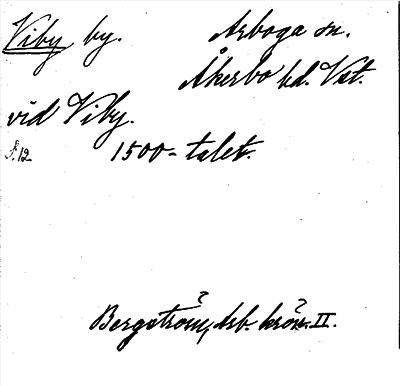 Viby by. Arboga sn.
Åkerbo hd. Vst.
vid Viby.
S. 12 1500-talet.
Bergström, Arb. krön. II.